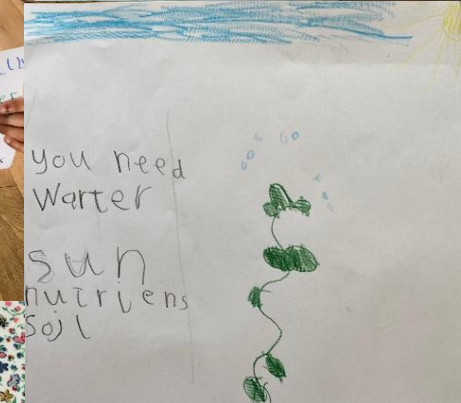 you need
Warter
sun
nutriens
Soil